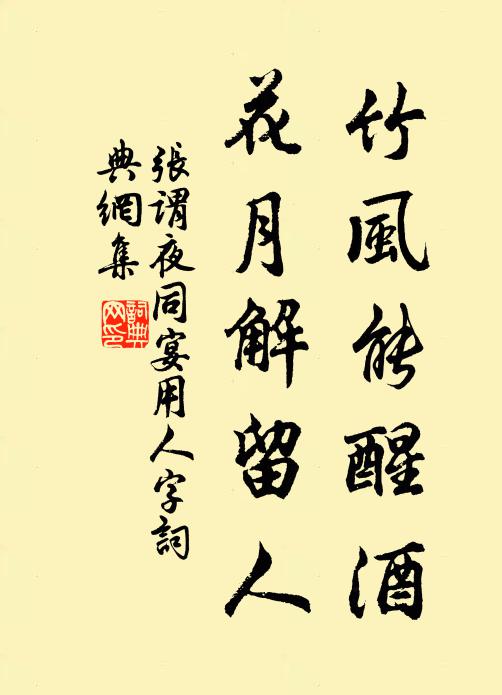 竹風能醒酒
花月解留人
張謂夜同宴用人字詞
典網集
詞典
网印